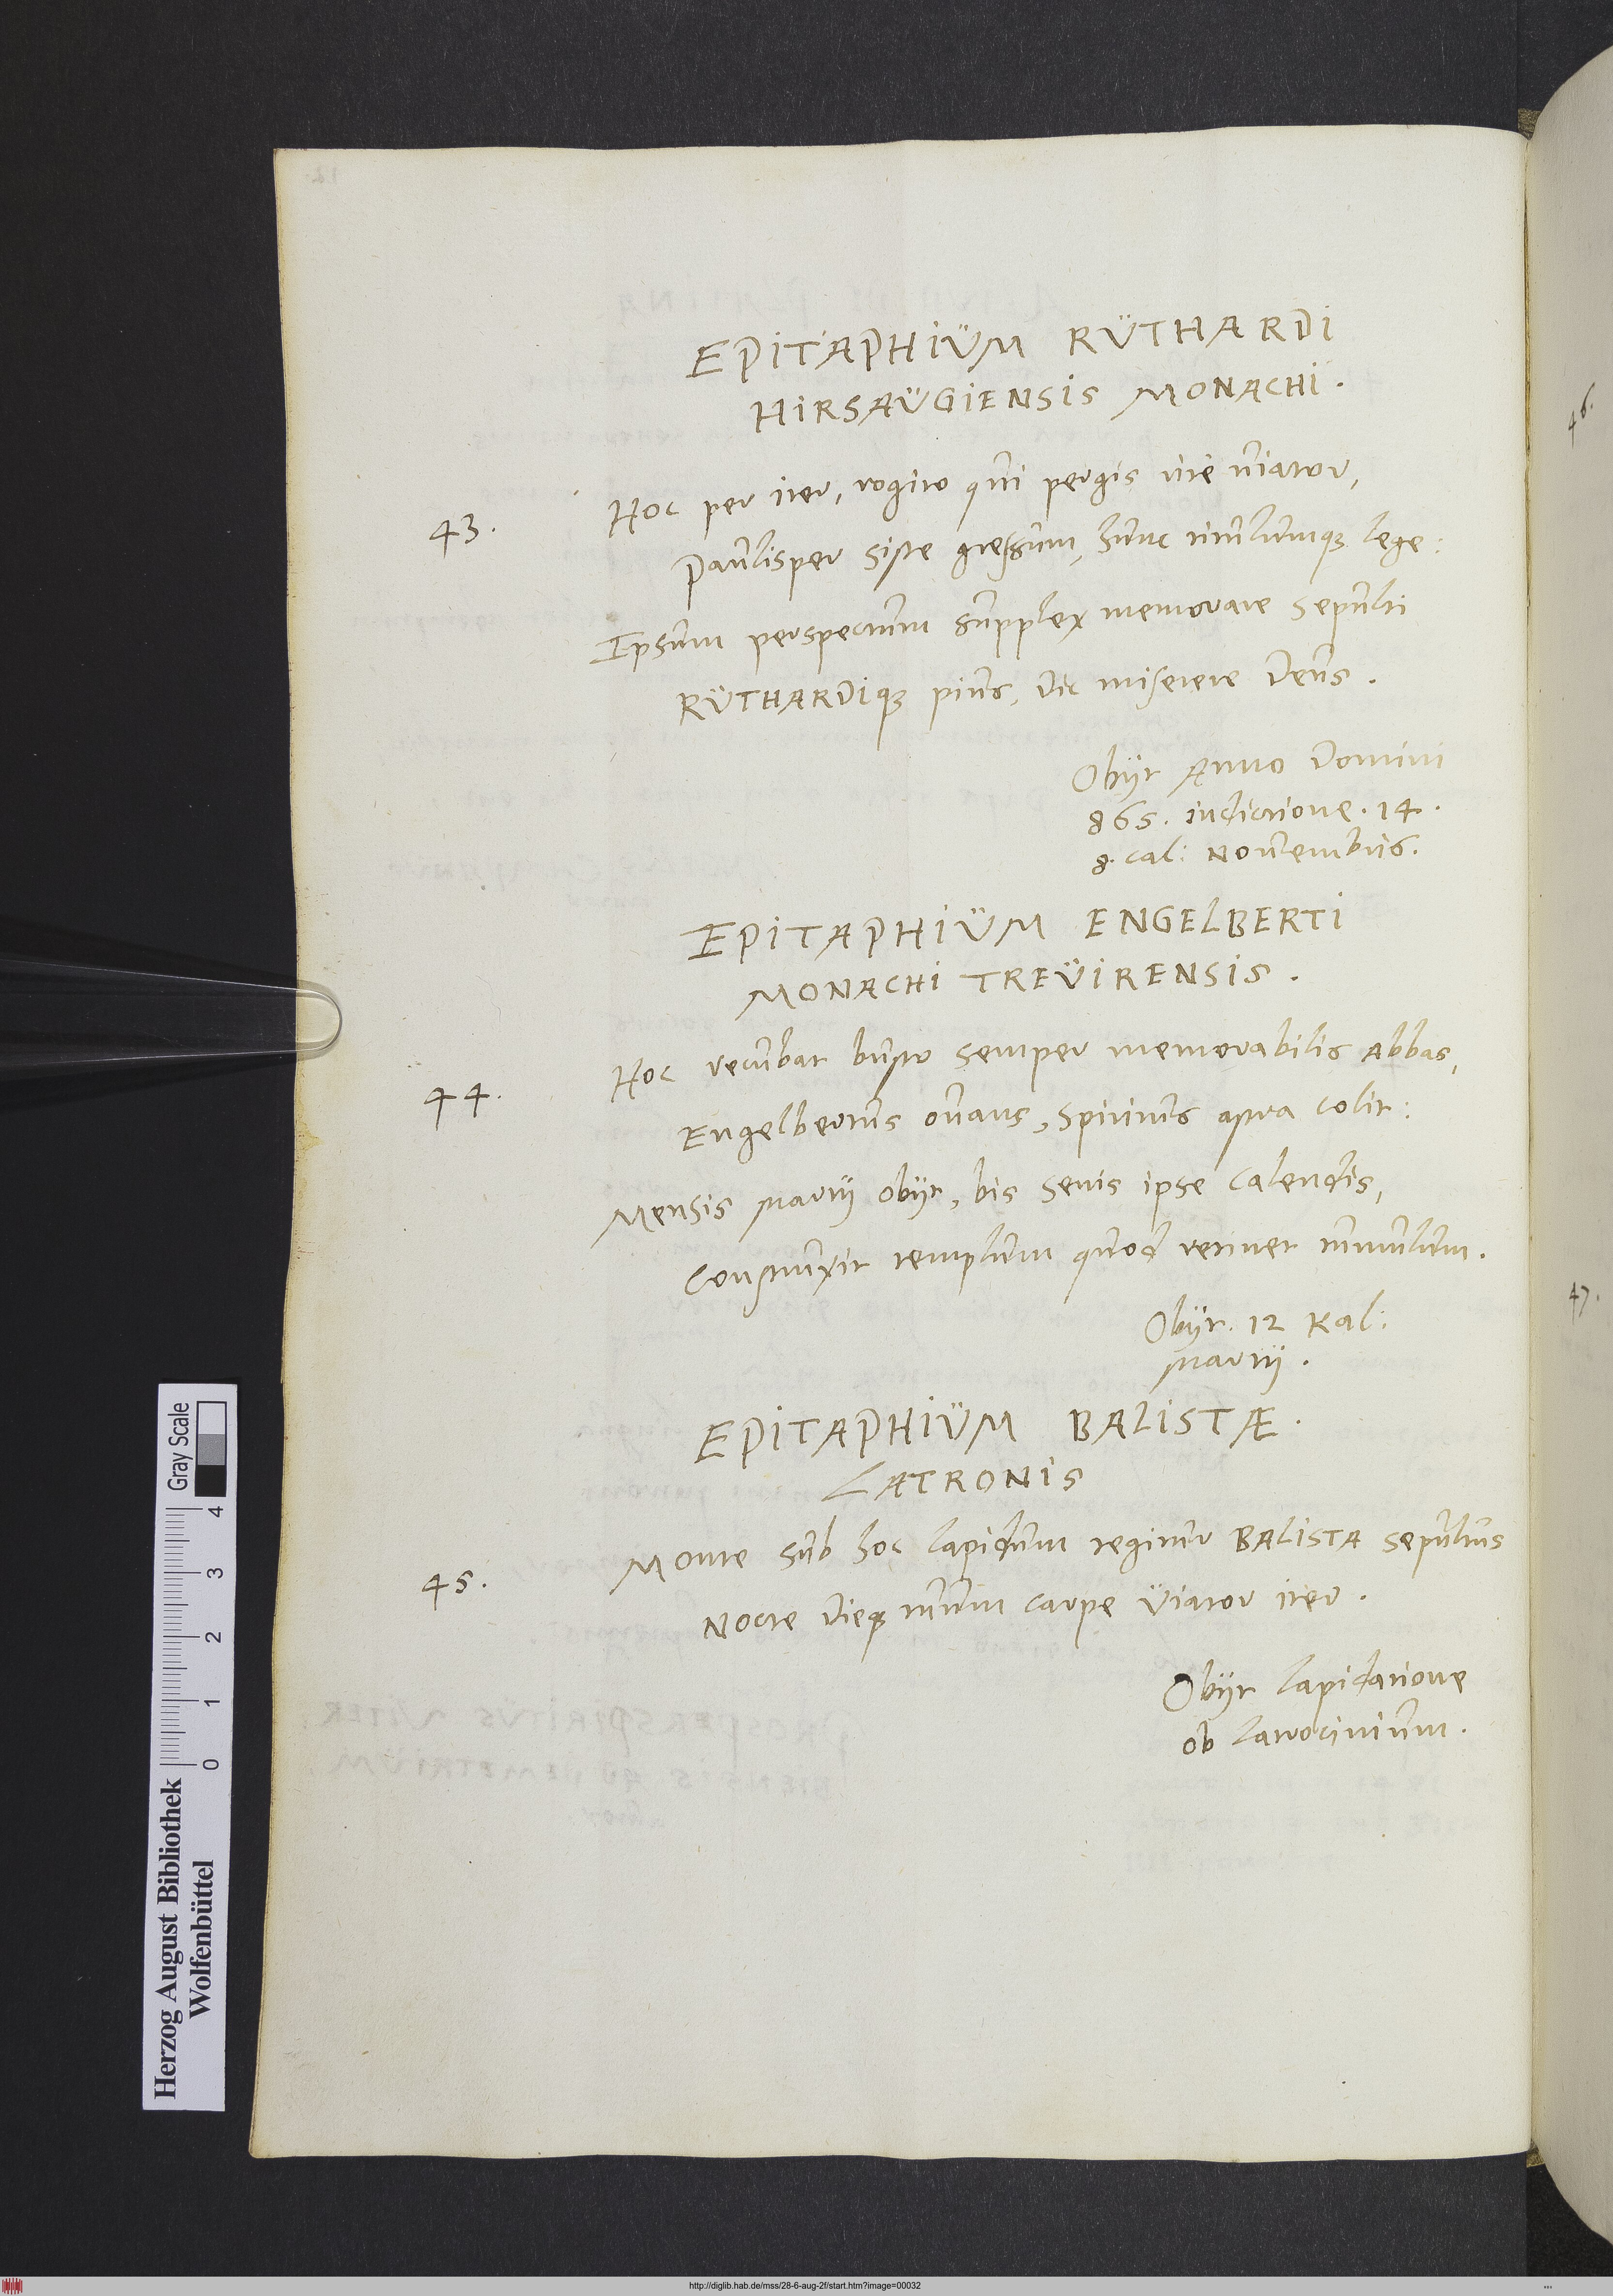 EPITAPHIÜM RÜTHARDI
HIRSAÜGIENSIS MONACHI.
43.
Hoc per iter, rogito qui pergis rite viator,
Paulisper siste gressum, hunc titulumq; lege:
Ipsum perspectum supplex memorare sepulti
RÜTHARDIq; pius, dic miserere Deus.
Obijt Anno Domini
865. indictione. 14.
8. cal: Novembris.
EPITAPHIÜM ENGELBERTI
MONACHI TREÜIRENSIS.
44.
Hoc recubat busto semper memorabilis Abbas,
Engelbertus ovans, spiritus astra colit:
Mensis Martij obijt, bis senis ipse Calendis,
Construxit templum quod retinet tumulum.
Obijt. 12 Kal:
Martij.
EPITAPHIÜM BALISTÆ.
LATRONIS
45.
Monte sub hoc lapidum tegitur BALISTA sepultus
Nocte dieq; tutum carpe Viator iter.
Obijt lapidatione
ob latrocinium.
46.
47.
Herzog August Bibliothek
Wolfenbüttel
0 1 2 3 4
Gray Scale
http://diglib.hab.de/mss/28-6-aug-2f/start.htm?image=00032